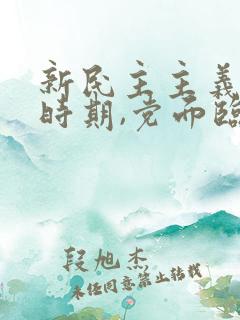 新民主主義
時期,党面臨
段旭杰
未经同意禁止转载